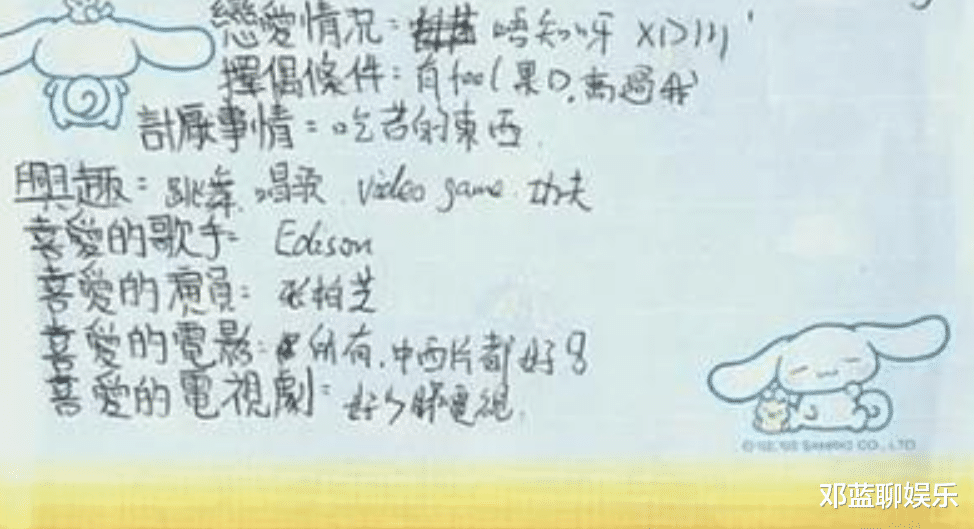 戀愛情況: 唔知呀 XD)))
擇偶條件: 有feel(果D, 高過我
討厭事情: 吃苦的東西.
興趣: 跳舞. 唱歌. video game. 功夫
喜愛的歌手: Edison
喜愛的演員: 張柏芝
喜愛的電影: 所有, 中西片都好
喜愛的電視劇: 好少睇電視.
© '02, '05 SANRIO CO., LTD
邓蓝聊娱乐